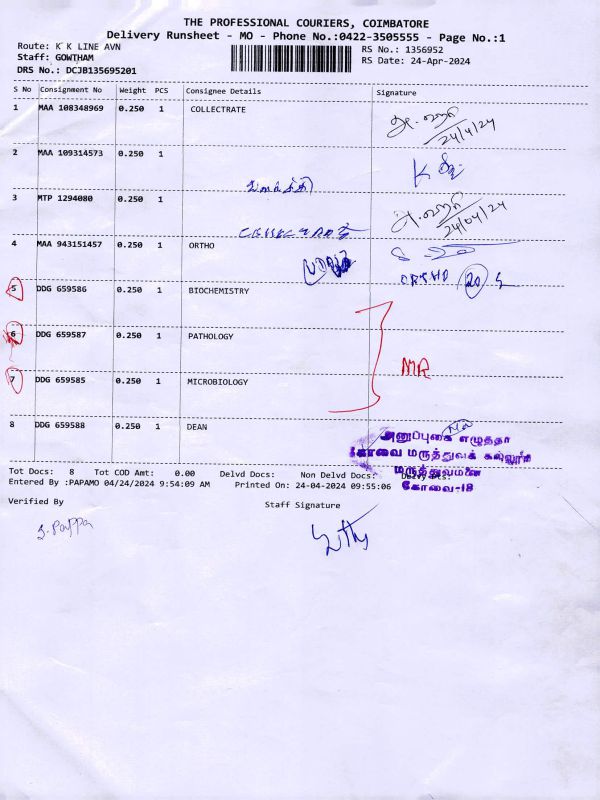 THE PROFESSIONAL COURIERS, COIMBATORE
Delivery Runsheet - MO - Phone No.:0422-3505555 - Page No.:1
Route: K K LINE AVN
RS No.: 1356952
Staff: GOWTHAM
RS Date: 24-Apr-2024
DRS No.: DCJB135695201
S No Consignment No Weight PCS Consignee Details Signature
1 MAA 108348969 0.250 1 COLLECTRATE
24/4/24
2 MAA 109314573 0.250 1
3 MTP 1294080 0.250 1
24/04/24
4 MAA 943151457 0.250 1 ORTHO
ORTHO 20
5 DDG 659586 0.250 1 BIOCHEMISTRY
6 DDG 659587 0.250 1 PATHOLOGY
MR
7 DDG 659585 0.250 1 MICROBIOLOGY
8 DDG 659588 0.250 1 DEAN
அனுப்புகை எழுத்தர்
கோவை மருத்துவக் கல்லூரி
மருத்துவமனை
கோவை-18
Tot Docs: 8 Tot COD Amt: 0.00 Delvd Docs: Non Delvd Docs: Delvy Pcs:
Entered By :PAPAMO 04/24/2024 9:54:09 AM Printed On: 24-04-2024 09:55:06
Verified By Staff Signature
S. Pappa